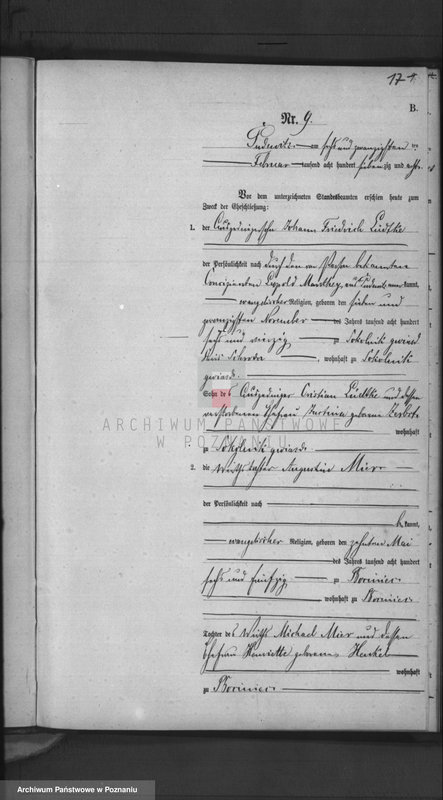 171.
B.
Nr. 9.
Pudewitz am sechs und zwanzigsten
Februar tausend acht hundert siebenzig und acht
Vor dem unterzeichneten Standesbeamten erschien heute zum
Zweck der Eheschließung:
1. der Johann Friedrich Lüdtke
der Persönlichkeit nach durch den von Person bekannten
Leopold kannt,
evangelischer Religion, geboren den sieben und
zwanzigsten November des Jahres tausend acht hundert
sechs und vierzig zu Sokolniki
Kreis Schroda, wohnhaft zu Sokolniki
Sohn des Cristian Lüdtke und dessen
verstorbenen Ehefrau geborene
wohnhaft
zu Sokolniki
2. die Wirthstochter Augustine Mier
der Persönlichkeit nach
kannt,
evangelischer Religion, geboren den zehnten Mai
des Jahres tausend acht hundert
sechs und fünfzig zu
wohnhaft zu
Tochter des Wirths Michael Mier und dessen
Ehefrau Henriette geborene Henkel
wohnhaft
zu
ARCHIWUM PAŃSTWOWE
W POZNANIU
Archiwum Państwowe w Poznaniu